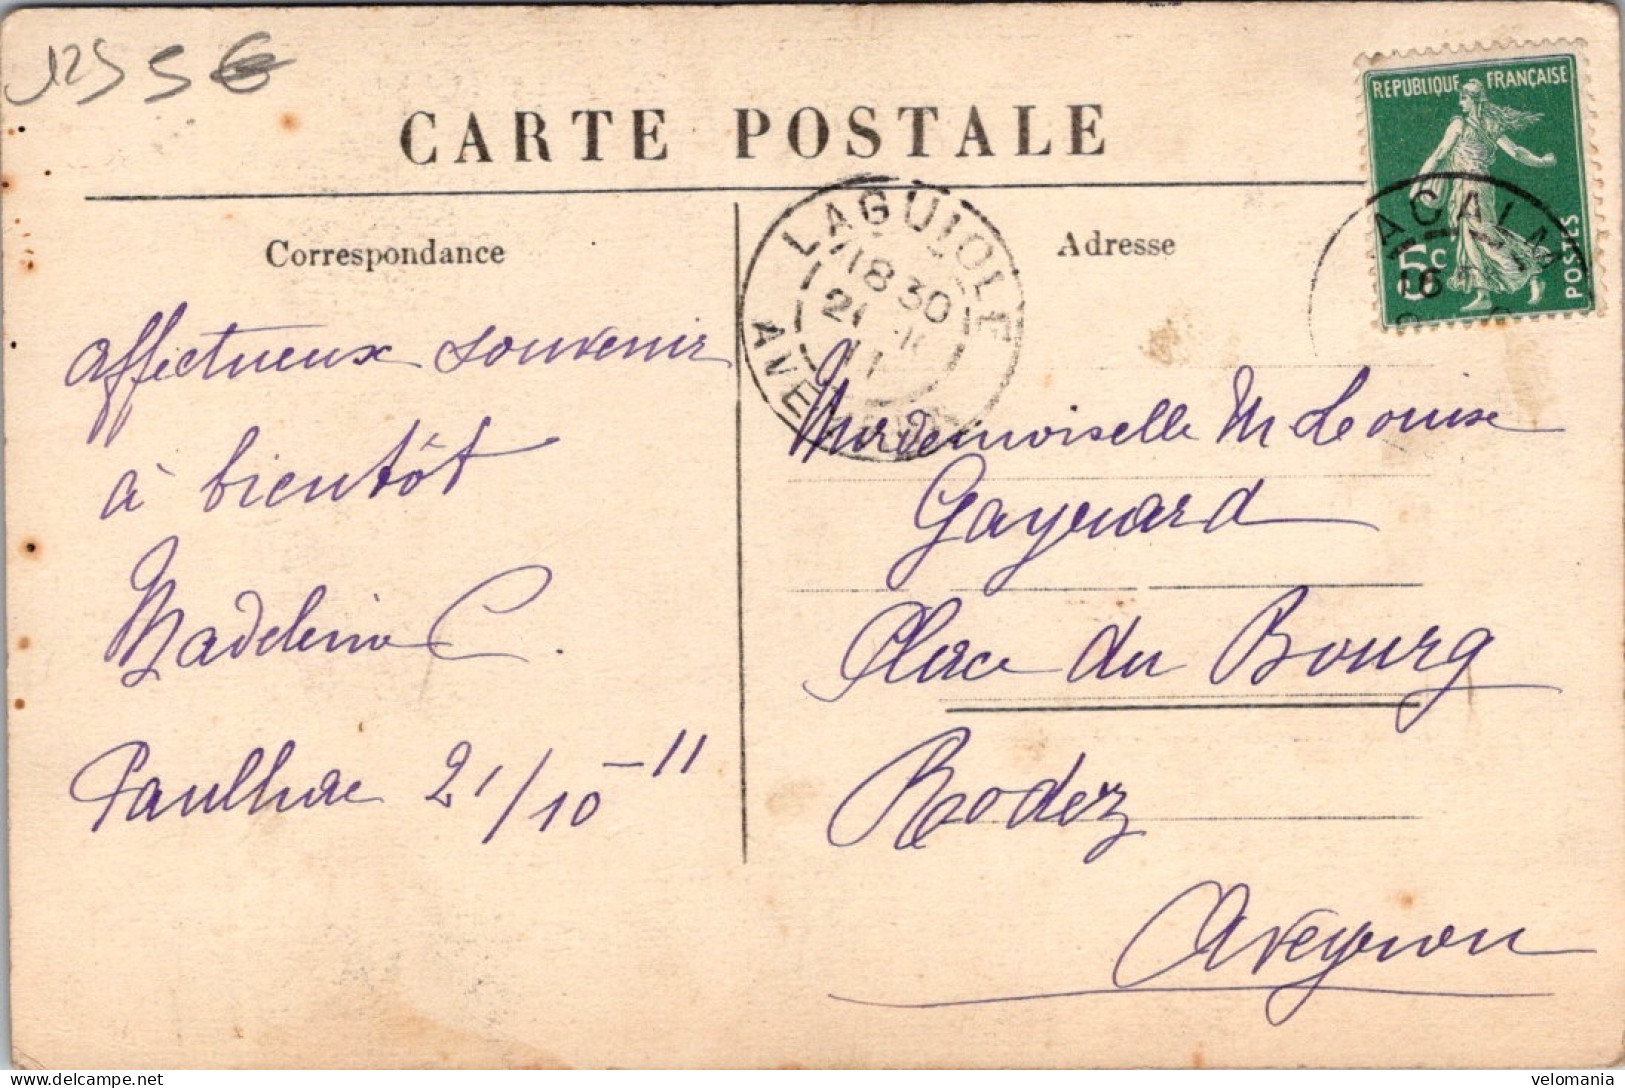 125 5€
CARTE POSTALE
REPUBLIQUE FRANÇAISE
5c
POSTES
LACALM
16
LAGUIOLE
18 30
21
11
AVEYRON
Correspondance
Adresse
affectueux souvenir
à bientôt
Madeleine C.
Paulhac 21/10-11
Mademoiselle M Louise
Gaynard
Place du Bourg
Rodez
Aveyron
delcampe.net
velomania